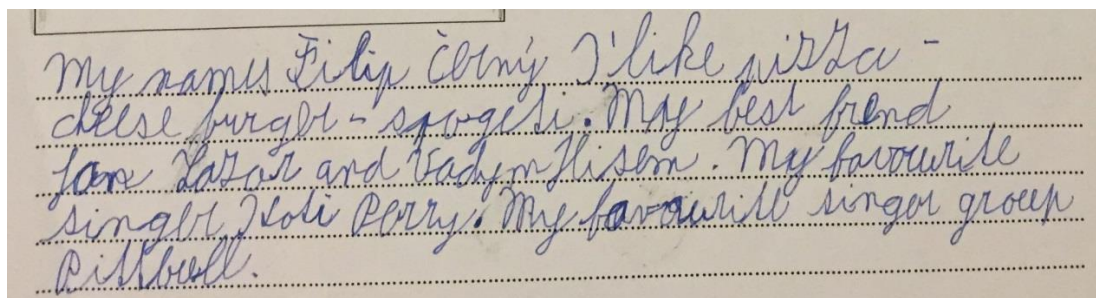 My names Filip Černý I'like pizza -
cheese burger - spogeti. My best frend
Jan Lazor and Vadym Hisem. My favourite
singer Kati Perry. My favourite singer group
Pittbull.